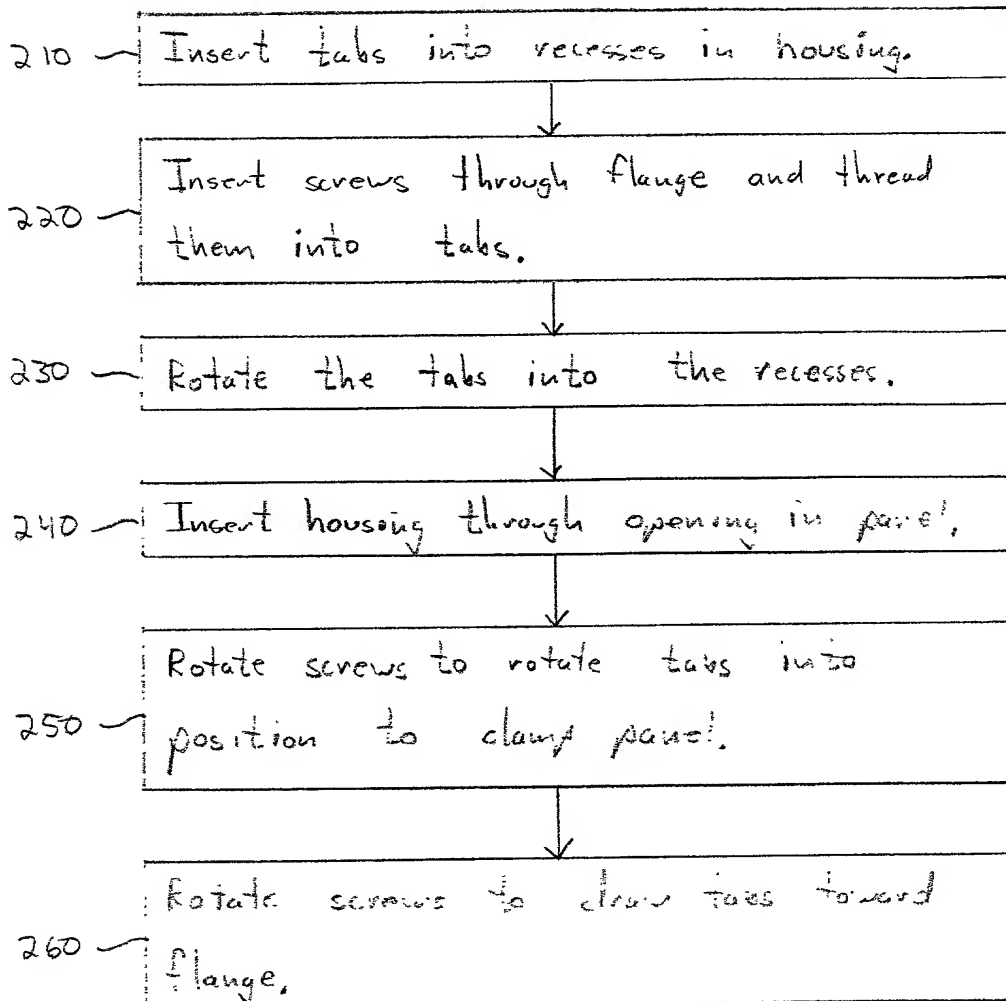 210 Insert tabs into recesses in housing.
Insert screws through flange and thread
220
them into tabs.
230 Rotate the tabs into the recesses.
240 Insert housing through opening in panel.
Rotate screws to rotate tabs into
250 position to clamp panel.
Rotate screws to draw tabs toward
260 flange.